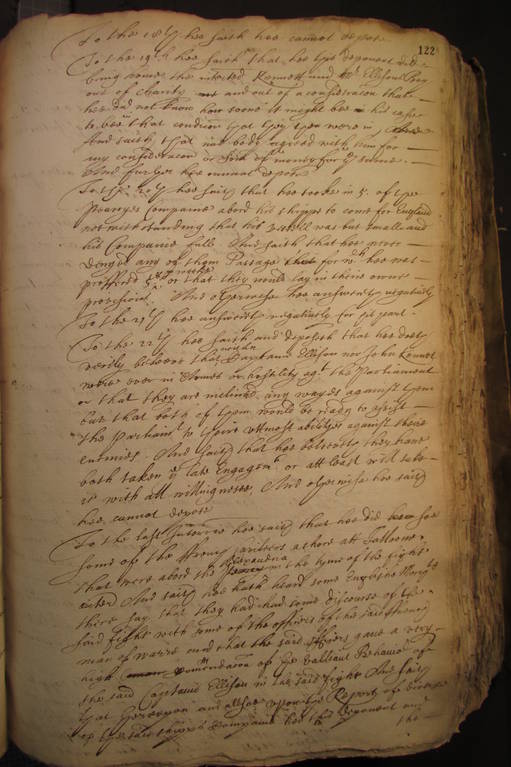 122
To the 18th hee saith hee cannot depose
To the 19th hee saith that hee this deponent did
bring home the interrated Kennett and Mr Ellisons Boy
out of charity and out of a consideracon that
hee did not know how soone it might bee in his case
to bee in that condicon that they then were in
And saith that no body agreed with him for
any consideracon or sum of money for the same.
And further hee cannot depose
To the 20th hee saith that hee tooke in 5. of the
Companie abord his shippe to come for England
notwithstanding that his vessell was but smalle and
his Companie full And saith that hee never
denyed any of them Passage for wch hee was
proffered or that they would lay in theire owne
provision. And otherwise hee answereth negatively
To the 21th hee answereth negatively for his part.
To the 22th hee saith and deposeth that hee doth
verily beleeve that neither Captaine Ellison nor John Kennet
were ever in Armes or hostility agt the Parliament
or that they are inclined any wayes against them
but that both of them would be ready to assist
the Parliamt to theire uttmost abilities against theire
enemies. And saith that hee beleeveth they have
both taken ye late Engagemt or att least will take
it with all willingnesse, And otherwise hee saith
hee cannot depose
To the last Interrie hee saith that hee did see
some of the French ashore att
that were abord the in the tyme of the fight
And saith hee hath heard some English Marchts
there say that they had had some discourse of the
said fight with some of the officers of the said French
man of warre and that the said officers gave a very
high Commendacon of the valliant Behavior of
the said Captaine Ellison in the said fight And saith
that hereupon and allsoe upon the Report of
of the said shipps Companie hee this deponent and
the